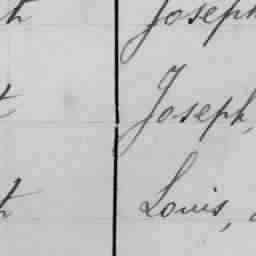 Joseph
Joseph,
Louis,